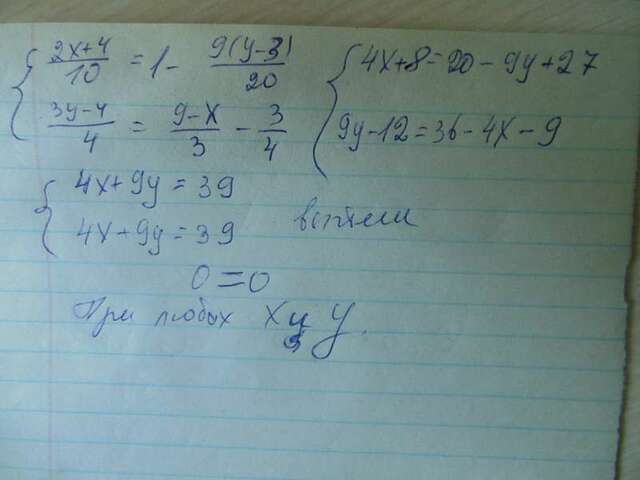 (2x+4)/10 = 1 - 9(y-3)/20
(3y-4)/4 = (9-x)/3 - 3/4
4x+8=20-9y+27
9y-12=36-4x-9
4x+9y=39
4x+9y=39 вычтем
0=0
При любых x и y.